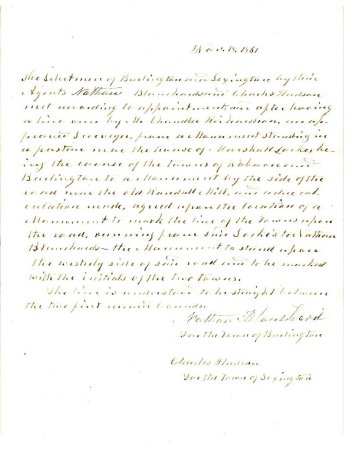 Nov. 18. 1861
The Selectmen of Burlington and Lexington by their
Agents Nathan Blanchard and Charles Hudson
met according to appointment and after having
a line run by Mr. Chandler Richardson, an ap-
proved Surveyor, from a Monument standing in
a pasture near the house of Marshall Locke, be-
ing the corner of the towns of Woburn and
Burlington to a Monument by the side of the
road near the old Randall Hill, and and
culation made, agreed upon the location of a
Monument to mark the line of the towns upon
the road, running from said Locke's to Nathan
Blanchards - the Monument to stand upon
the westerly side of said road and to be marked
with the initials of the two towns.
The line is understood to be straight between
the two first named bounds.
Nathan Blanchard
For the town of Burlington
Charles Hudson
For the town of Lexington